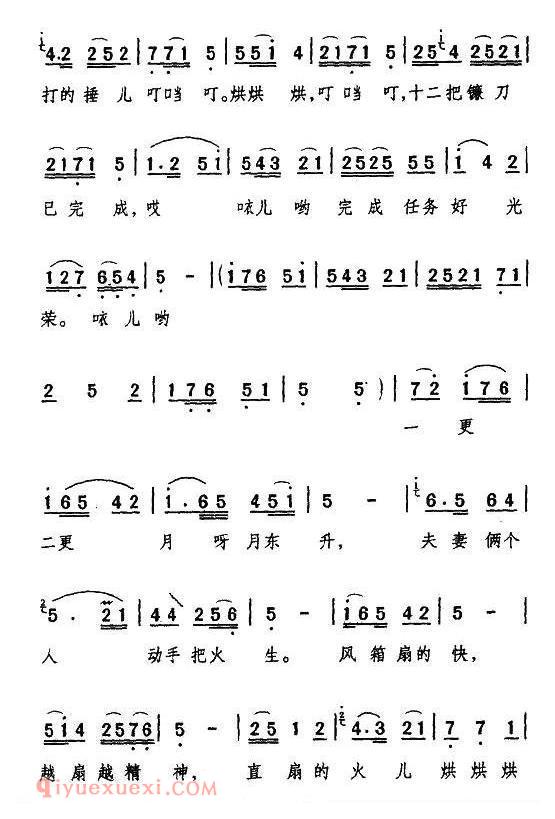 4.2 252 | 7 7 1 5 | 5 5 1 2171 5 | 25 4 2521 |
打的 捶儿 叮当 叮。烘烘 烘, 叮当 叮, 十二把镰刀
2171 5 | 1.2 51 | 543 21 | 2525 55 | 1 4 2 |
已完 成, 哎 咴儿 哟 完成 任务 好 光
127 6 5 4 | 5 - | ( 176 51 | 543 21 | 2521 71 |
荣。 咴儿 哟
2 5 2 | 176 51 | 5 5 ) | 72 176 |
一 更
165 42 | 1.65 451 | 5 - | 6.5 64 |
二更 月 呀 月东 升, 夫妻 俩个
5. 21 | 44 256 | 5 - | 165 42 | 5 - |
人 动手 把火 生。 风箱 扇的 快,
514 2576 | 5 - | 25 1 2 | 4.3 21 | 7 7 1 |
越扇越精 神, 直扇的 火儿 烘烘烘
Qiyuexuexi.com